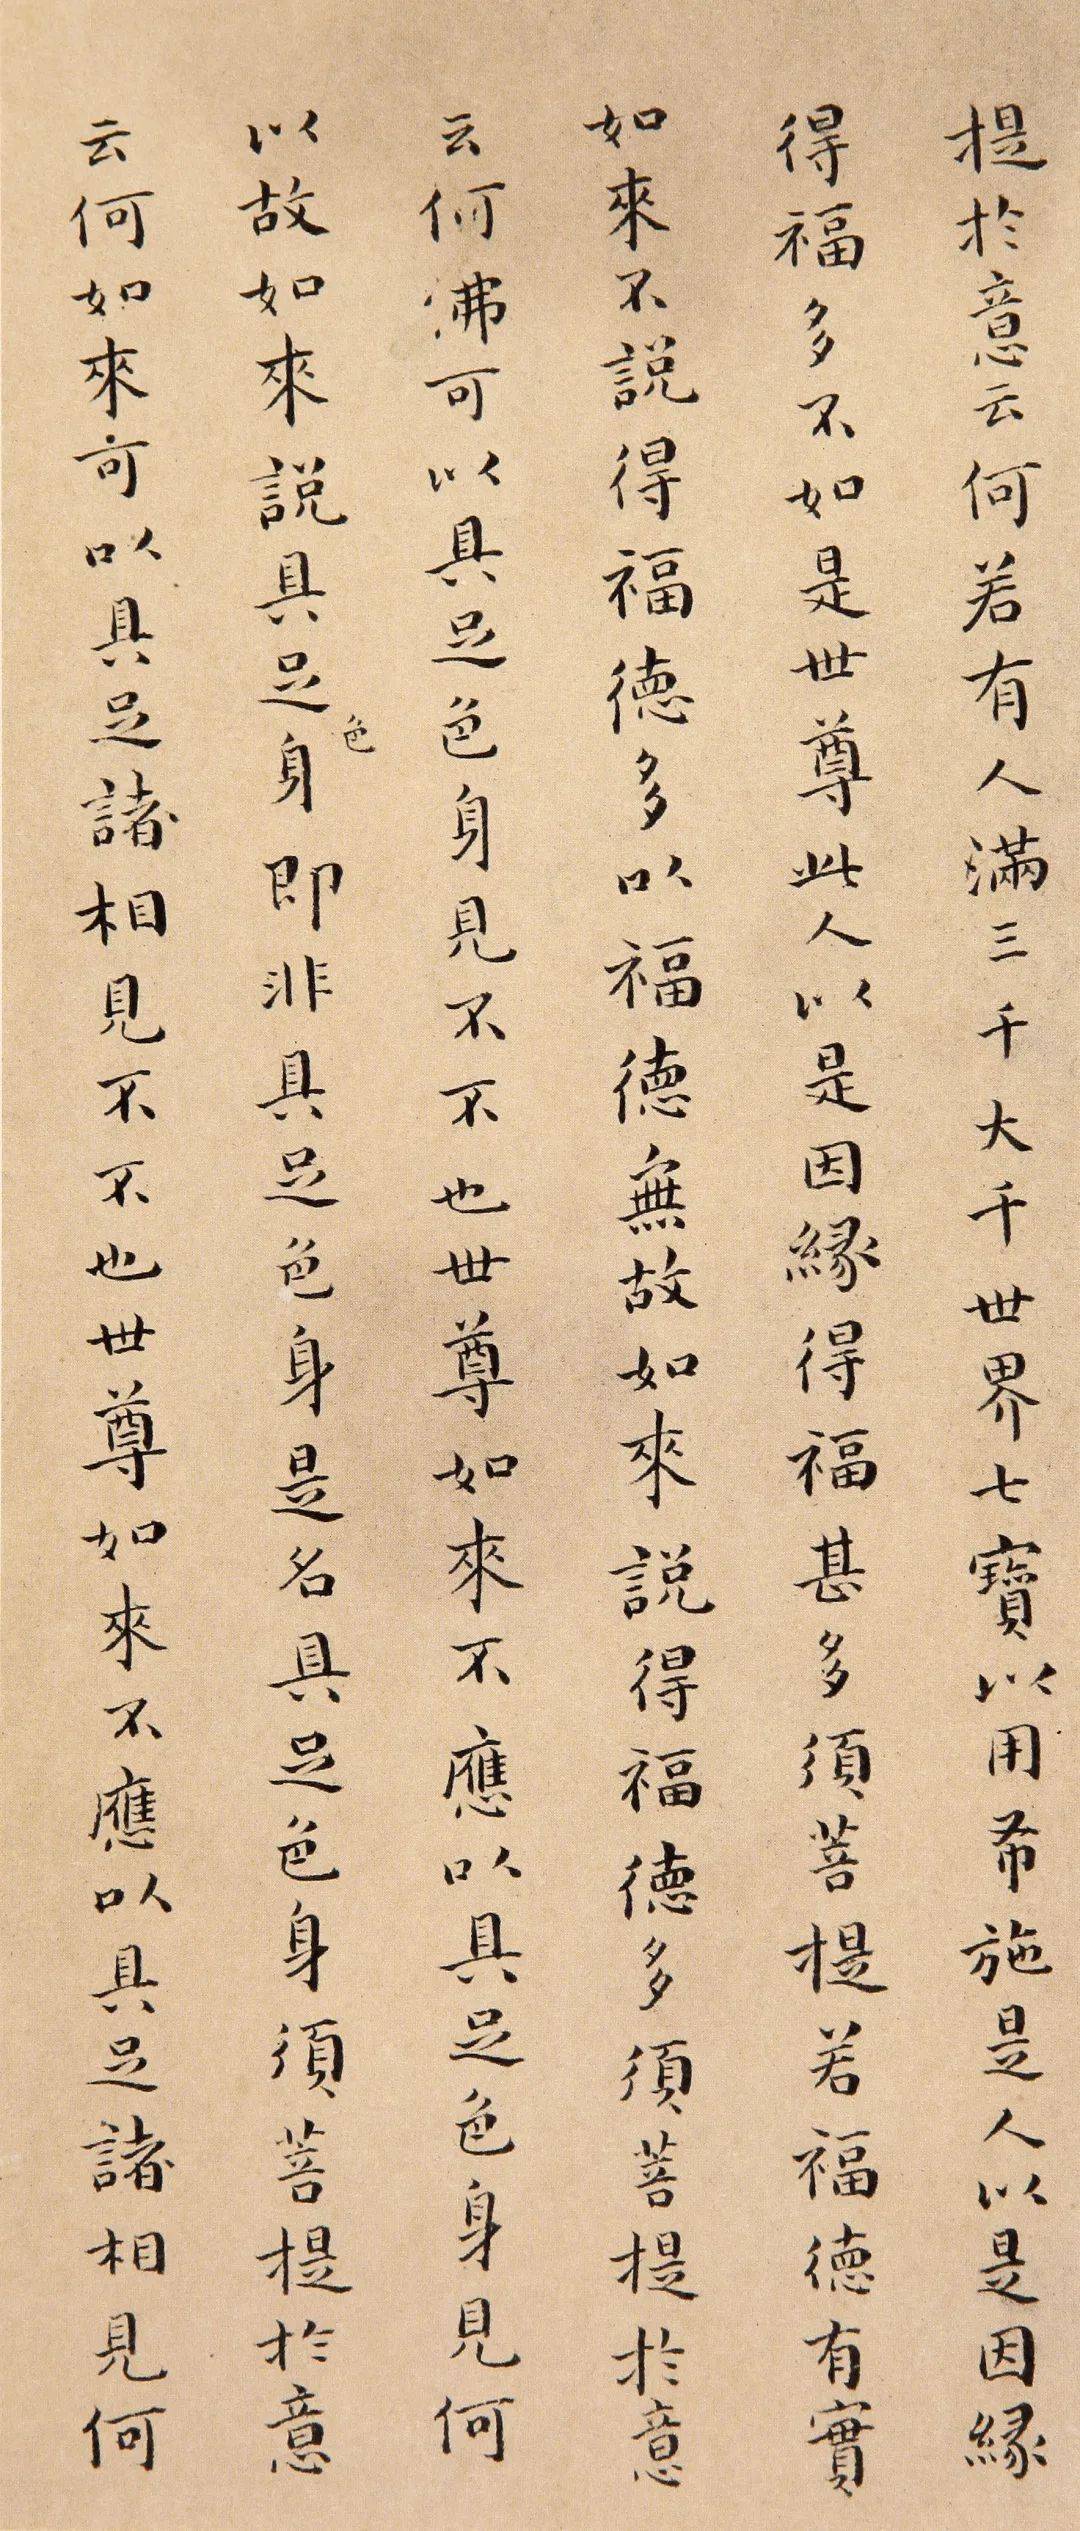 提於意云何若有人滿三千大千世界七寶以用布施是人以是因緣
得福多不如是世尊此人以是因緣得福甚多須菩提若福德有實
如來不說得福德多以福德無故如來說得福德多須菩提於意
云何佛可以具足色身見不不也世尊如來不應以具足色身見何
以故如來說具足色身即非具足色身是名具足色身須菩提於意
云何如來可以具足諸相見不不也世尊如來不應以具足諸相見何